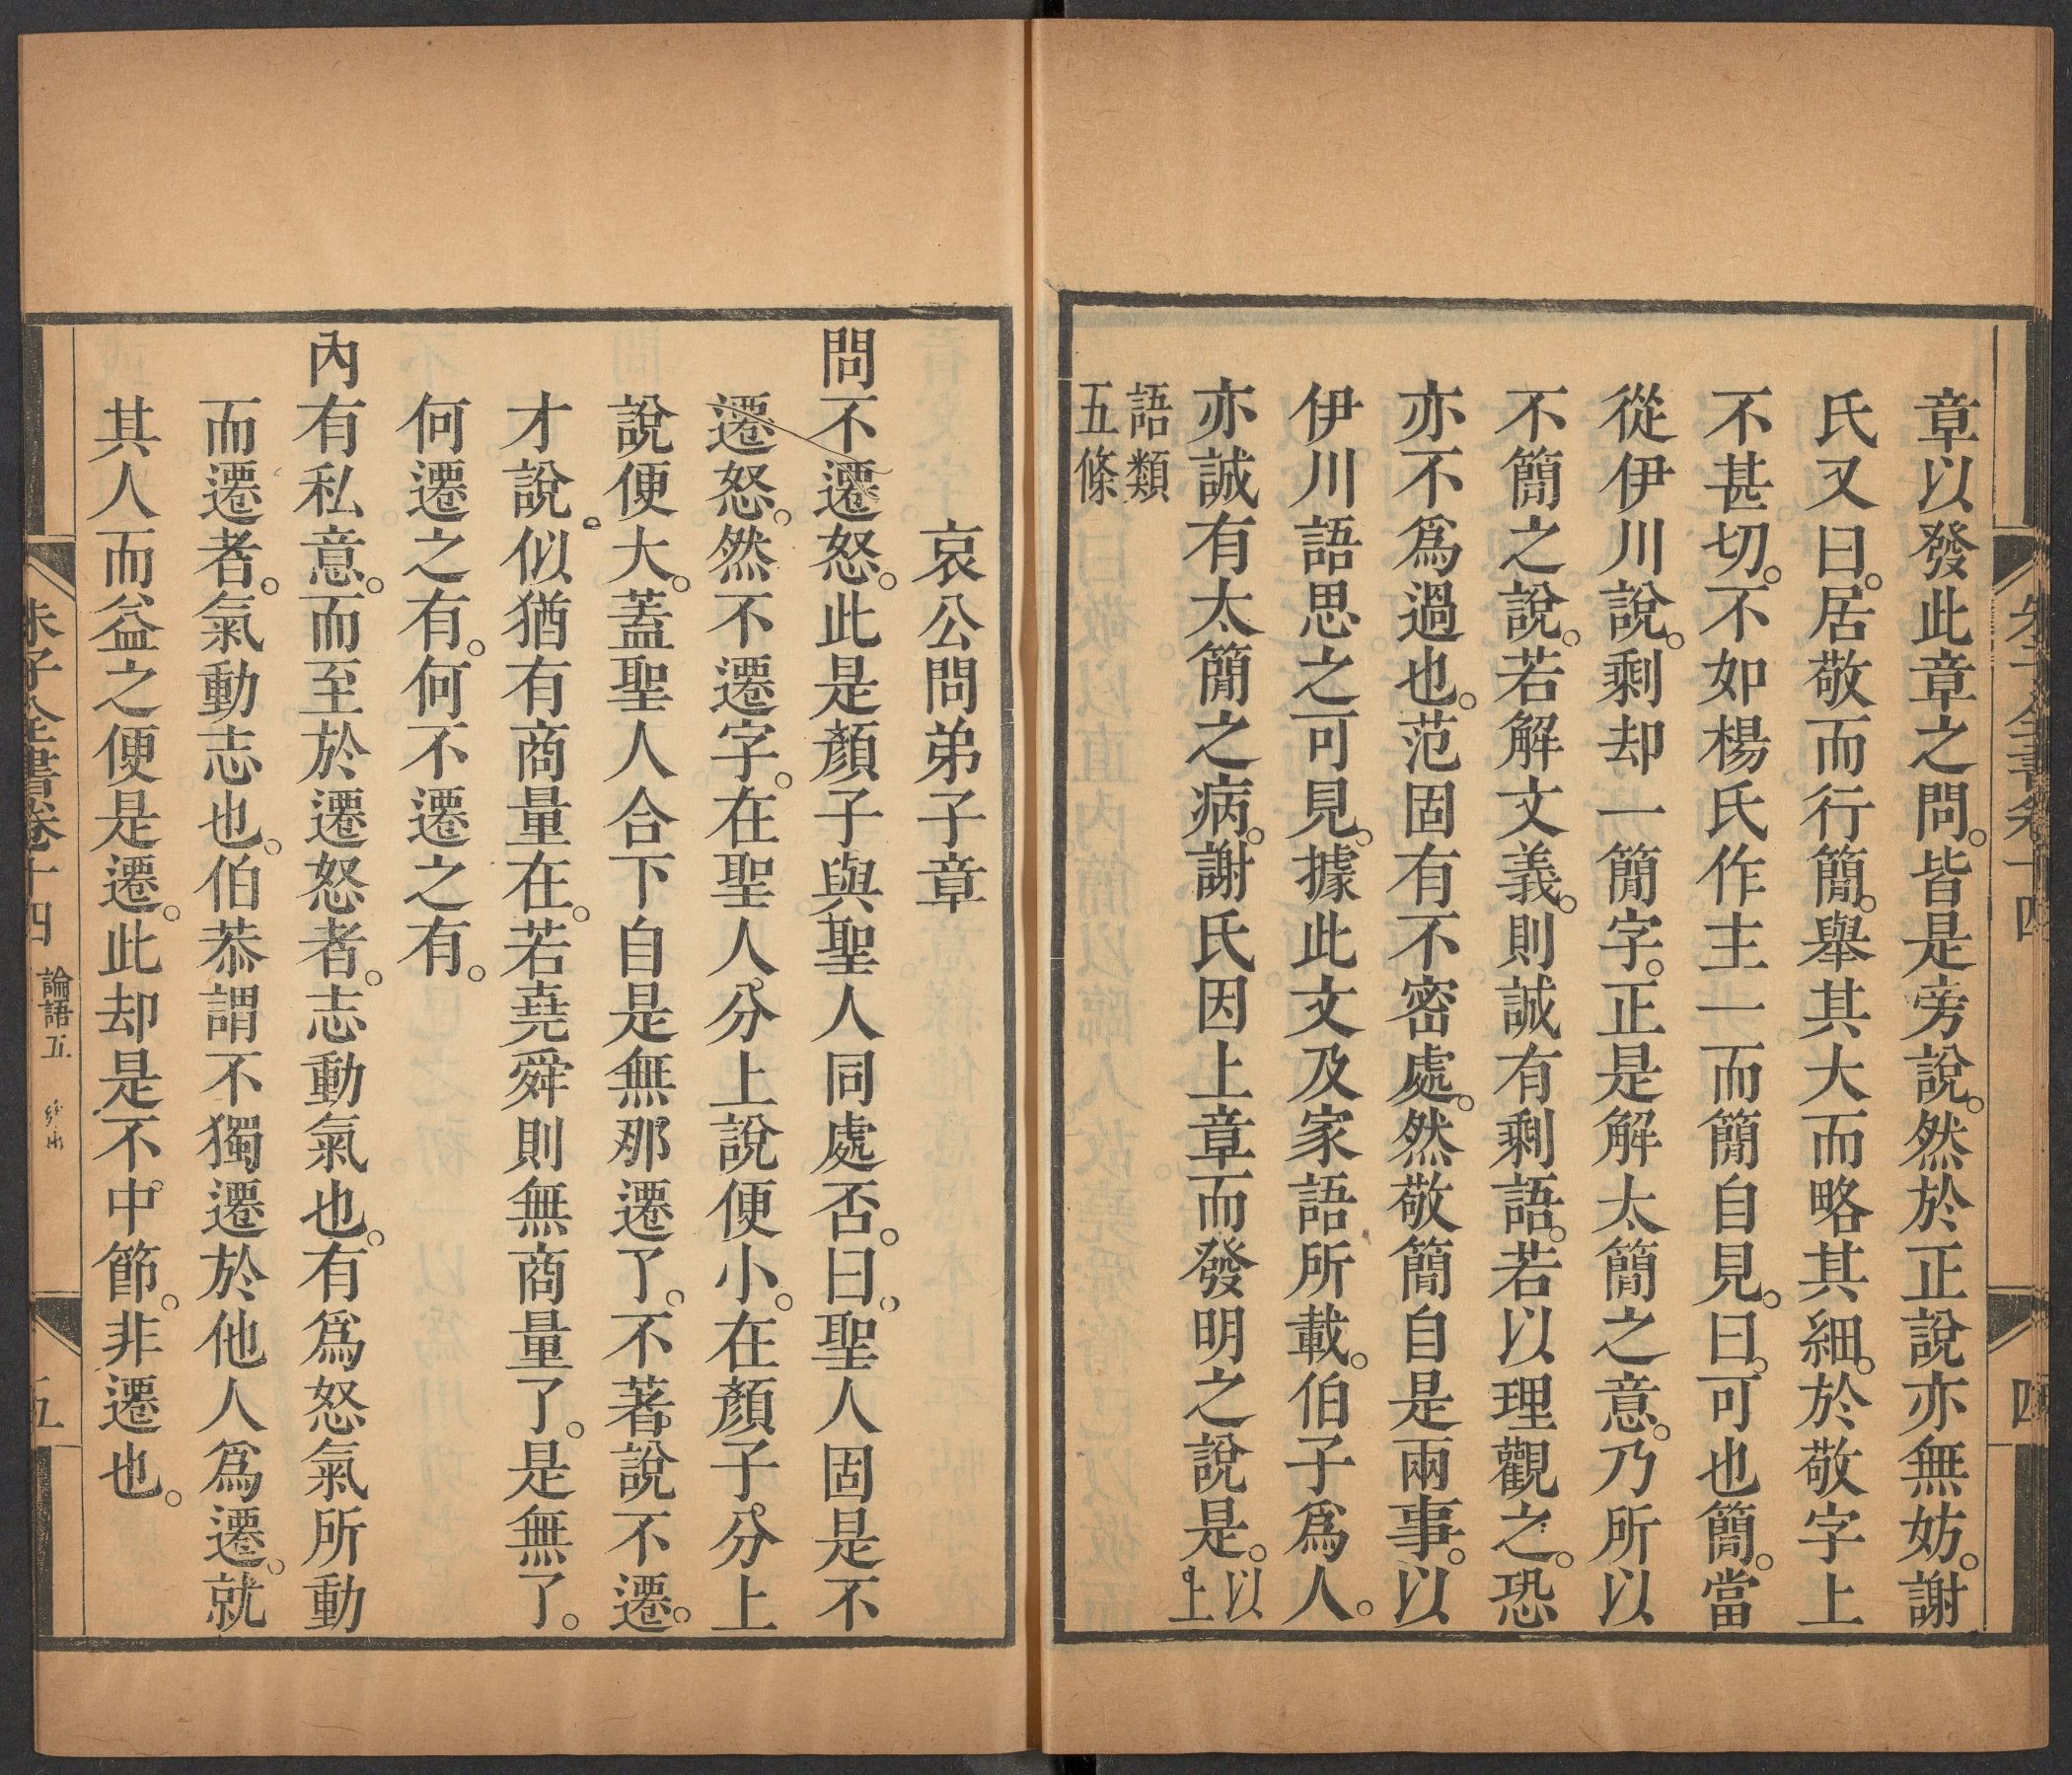 章以發此章之問。皆是旁說。然於正說亦無妨。謝
氏又曰。居敬而行簡。舉其大而略其細。於敬字上
不甚切。不如楊氏作主一而簡自見。曰。可也簡。當
從伊川說。剩却一簡字。正是解太簡之意。乃所以
不簡之說。若解文義。則誠有剩語。若以理觀之。恐
亦不爲過也。范固有不密處。然敬簡自是兩事。以
伊川語思之可見。據此文及家語所載。伯子爲人。
亦誠有太簡之病。謝氏因上章而發明之說是。以上
語類
五條
哀公問弟子章
問不遷怒。此是顏子與聖人同處否。曰。聖人固是不
遷怒。然不遷字。在聖人分上說便小。在顏子分上
說便大。蓋聖人合下自是無那遷了。不著說不遷。
才說。似猶有商量在。若堯舜則無商量了。是無了。
何遷之有。何不遷之有。
內有私意。而至於遷怒者。志動氣也。有爲怒氣所動
而遷者。氣動志也。伯恭謂不獨遷於他人爲遷。就
其人而益之便是遷。此却是不中節。非遷也。
朱子全書卷十四 論語五
五